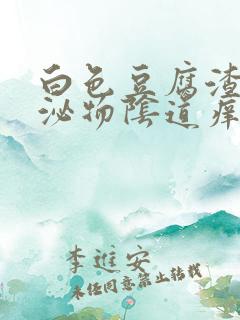 白色豆腐渣
泌物陰道癢
李進安
未经同意禁止转载